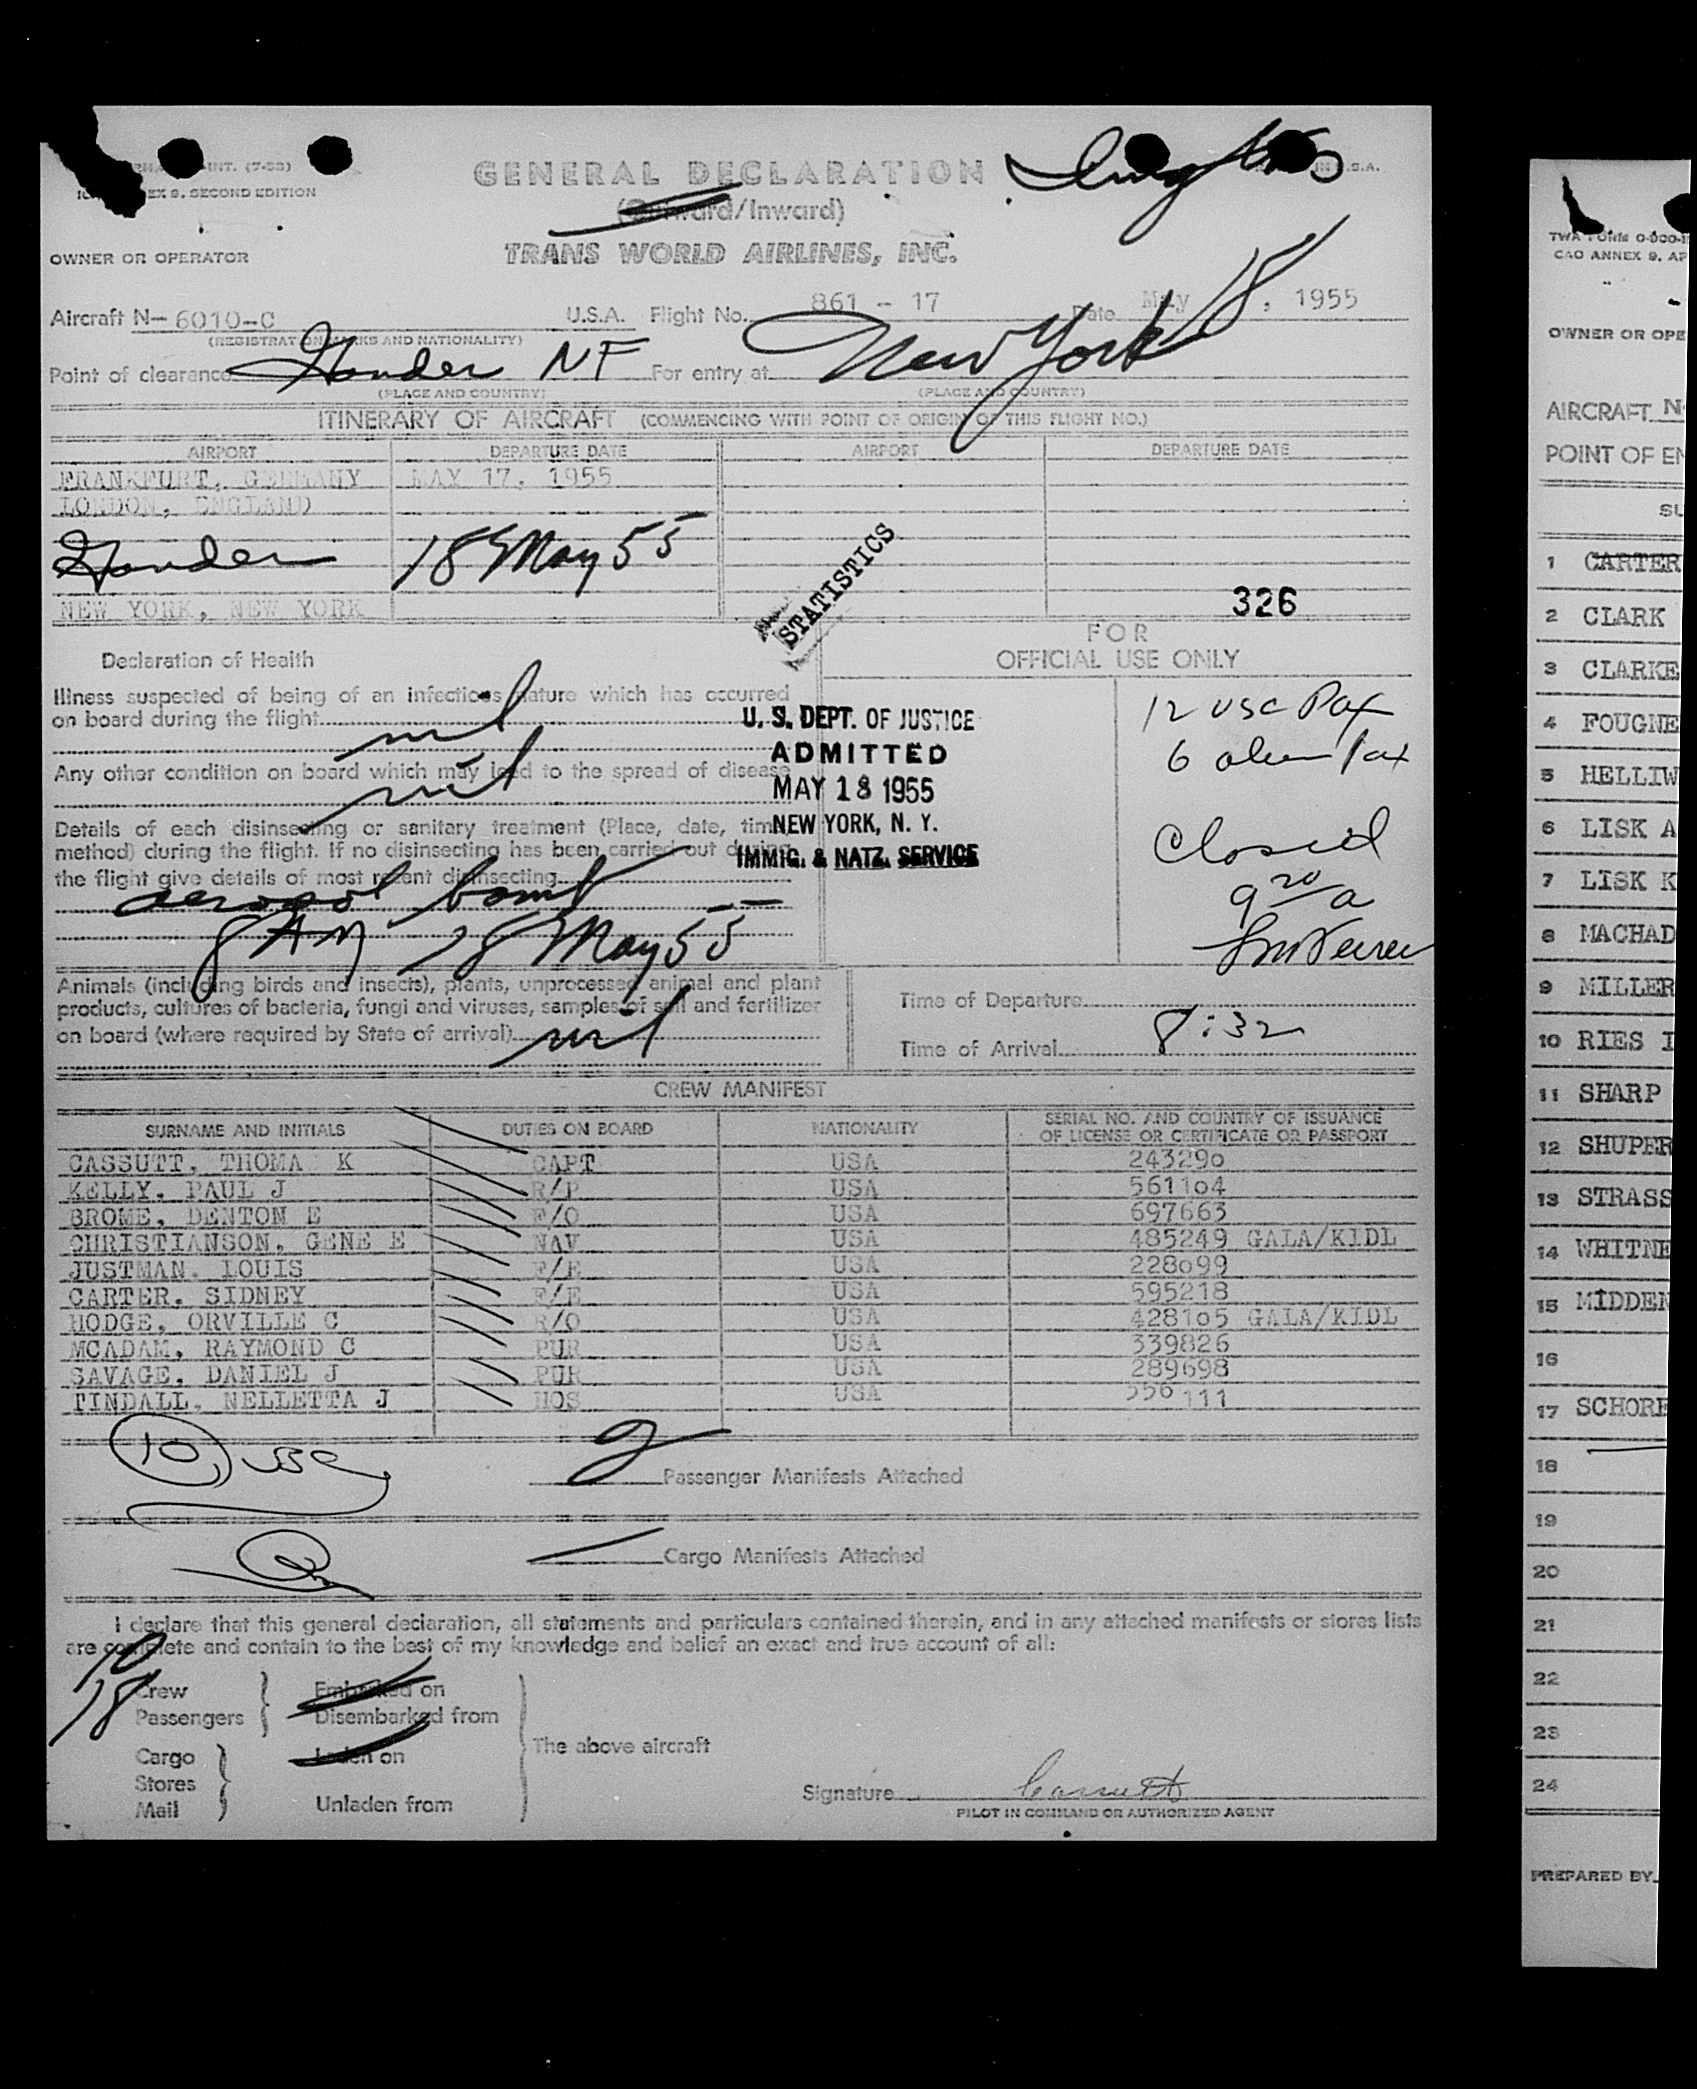 INT. (7-53)
EX 9. SECOND EDITION
GENERAL DECLARATION
(Outward/Inward)
OWNER OR OPERATOR
TRANS WORLD AIRLINES, INC.
Aircraft N- 6010-C U.S.A. Flight No. 861 - 17 Date May 18, 1955
(REGISTRATION MARKS AND NATIONALITY)
Point of clearance Gander NF For entry at New York
(PLACE AND COUNTRY) (PLACE AND COUNTRY)
ITINERARY OF AIRCRAFT (COMMENCING WITH POINT OF ORIGIN OF THIS FLIGHT NO.)
AIRPORT DEPARTURE DATE AIRPORT DEPARTURE DATE
FRANKFURT, GERMANY MAY 17, 1955
LONDON, ENGLAND
Gander 18 May 55
NEW YORK, NEW YORK
STATISTICS
326
FOR
OFFICIAL USE ONLY
Declaration of Health
Illness suspected of being of an infectious nature which has occurred
on board during the flight nil
Any other condition on board which may lead to the spread of disease
nil
Details of each disinsecting or sanitary treatment (Place, date, time,
method) during the flight. If no disinsecting has been carried out during
the flight give details of most recent disinsecting
aerosol bomb
8 AM 18 May 55
U. S. DEPT. OF JUSTICE
ADMITTED
MAY 18 1955
NEW YORK, N. Y.
IMMIG. & NATZ. SERVICE
12 USC Pax
6 alien Pax
Closed
9 20 a
Animals (including birds and insects), plants, unprocessed animal and plant
products, cultures of bacteria, fungi and viruses, samples of soil and fertilizer
on board (where required by State of arrival) nil
Time of Departure
Time of Arrival 8:32
CREW MANIFEST
SURNAME AND INITIALS DUTIES ON BOARD NATIONALITY SERIAL NO. AND COUNTRY OF ISSUANCE
OF LICENSE OR CERTIFICATE OR PASSPORT
CASSUTT, THOMA K CAPT USA 243290
KELLY, PAUL J R/P USA 561104
BROME, DENTON E F/O USA 697663
CHRISTIANSON, GENE E NAV USA 485249 GALA/KIDL
JUSTMAN, LOUIS F/E USA 228099
CARTER, SIDNEY F/E USA 595218
HODGE, ORVILLE C R/O USA 428105 GALA/KIDL
MCADAM, RAYMOND C PUR USA 339826
SAVAGE, DANIEL J PUR USA 289698
TINDALL, NELLETTA J HOS USA 556111
10 USC
2 Passenger Manifests Attached
Cargo Manifests Attached
I declare that this general declaration, all statements and particulars contained therein, and in any attached manifests or stores lists
are complete and contain to the best of my knowledge and belief an exact and true account of all:
10 Crew Embarked on
18 Passengers Disembarked from
Cargo Laden on
Stores
Mail Unladen from
The above aircraft
Signature Cassutt
PILOT IN COMMAND OR AUTHORIZED AGENT
TWA FORM
CAO ANNEX 9. AP
OWNER OR OPE
AIRCRAFT N
POINT OF EN
SU
1 CARTER
2 CLARK
3 CLARKE
4 FOUGNE
5 HELLIW
6 LISK A
7 LISK K
8 MACHAD
9 MILLER
10 RIES I
11 SHARP
12 SHUPER
13 STRASS
14 WHITNE
15 MIDDEN
16
17 SCHORE
18
19
20
21
22
23
24
PREPARED BY